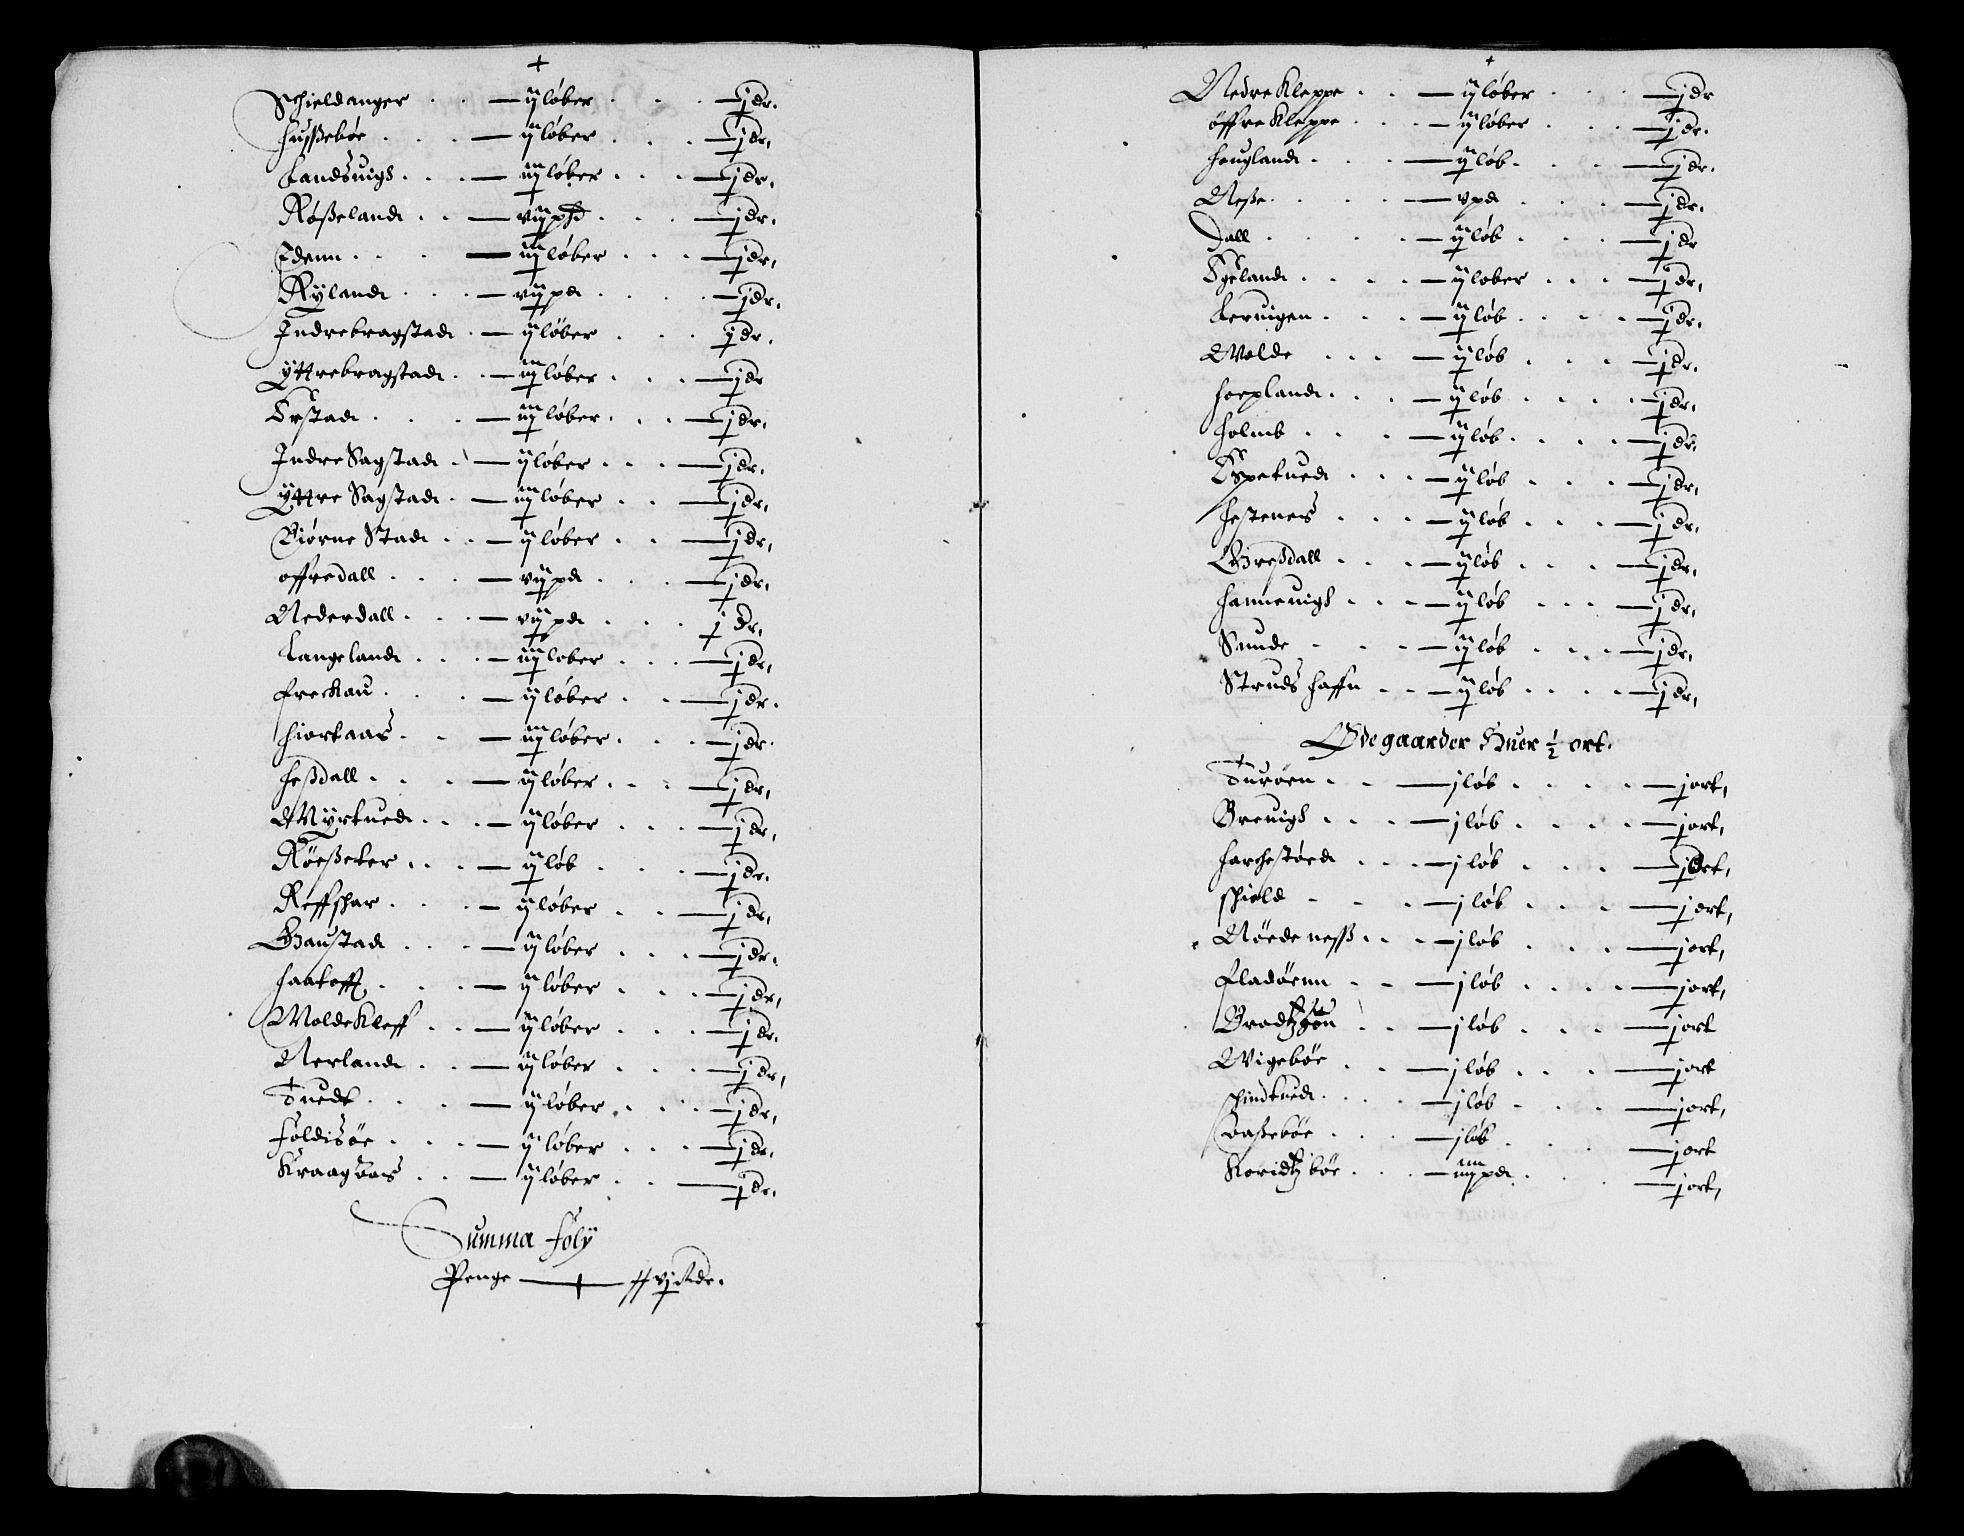 Schieldanger . . — ij løber . . . — j dr.
Husßebøe . . . — ij løber . . . — j dr.
Landsuigh . . . — iij løber . . . — j dr.
Røßeland . . — vij pd . . . — j dr.
Edenn . . . — iiij løber . . . — j dr.
Ryland . . . — vij pd . . . . — j dr.
Indrebragstad . — ij løber . . . j dr.
Yttrebragstad . . — iij løber . . . — j dr
Erstad . . . — iij løber . . . — j dr.
Indre Sagstad . — ij løber . . . — j dr.
Yttre Sagstad . — iij løber . . — j dr.
Biørne Stad . . — ij løber . . — j dr.
offredall . . . — vij pd . . . — j dr.
Nederdall . . . — vij pd . . . j dr.
Langeland . . . — iij løber . . . — j dr.
Freckau . . . — ij løber . . — j dr.
Hiortaas . . . — iij løber . . . — j dr.
Heßdall . . . — ij løber . . . — j dr.
Myrtued . . . — ij løber . . . — j dr.
Røeßeter . . . — ij løb . . . — j dr.
Reffschar . . . — ij løber . . — j dr.
Gaustad . . . — ij løber . . . — j dr.
Haatofft . . . — ij løber . . . — j dr.
Molde Kleff . . — ij løber . . . — j dr.
Nerland . . — ij løber . . . — j dr.
Tuedt . . . — ij løber . . . — j dr.
Føldisøe . . . — ij løber . . . — j dr.
Kraagøens . . — ij løber . . — j dr.
Summa Foly
Penge —— vj dr.
Nedre Kleppe . . — ij løber . . . — j dr
öffre Kleppe . . . — ij løber . . . — j dr.
Hougland . . . — ij løb . . . — j dr.
Neße . . . . — v pd . . . — j dr.
Dall . . . . — ij løb . . . — j dr
Egeland . . . . — ij løber . . . — j dr.
Leruigen . . . — ij løb . . . . — j dr.
Molde . . . — ij løb . . . — j dr.
Hopland . . . — ij løb . . . . — j dr.
Holmb . . . — ij løb . . . . — j dr.
Espetued . . . — ij løb . . . — j dr.
Hestenes . . . — ij løb . . . — j dr.
Greßdall . . . — ij løb . . . — j dr.
Hanneuigh . . . — ij løb . . . — j dr.
Sunde . . . — ij løb . . . — j dr.
Struds Haffn . . — ij løb . . . . — j dr.
Ødegaarder Huer ½ ort.
Turøen . . — j løb . . . . — j ort.
Breuigh . . . — j løb . . . . — j ort.
Harchestøed . . . — j løb . . . — j ort.
schield . . . — j løb . . . — j ort.
Nøede neß . . . — j løb . . . — j ort.
Fladøenn . . — j løb . . . . — j ort.
. . — j løb . . . — j ort
Wigebøe . . — j løb . . . — j ort
schindtued . . . . — j løb . . . — j ort.
Baßebøe . . . — j løb . . . — j ort
Koridtzbøe . . . — iiij pd . . . — j ort.